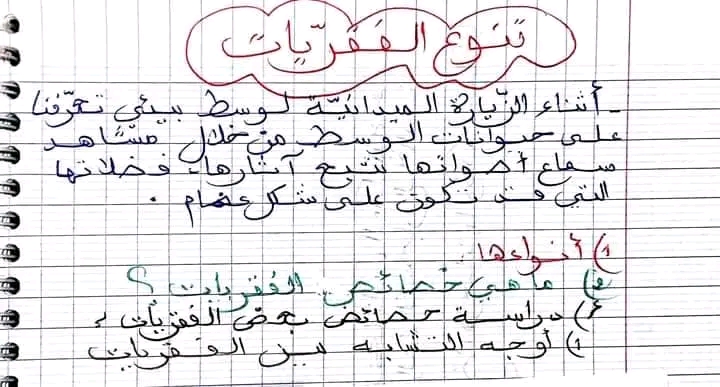 تنوع الفقريات
- أثناء الزيارة الميدانية لوسط بيئي تعرفنا
على حيوانات الوسط من خلال مشاهد
سماع أصواتها تتبع آثارها، فضلاتها
التي قد تكون على شكل عضام .
1) أنواعها
2) ما هي خصائص الفقريات ؟
أ) دراسة خصائص بعض الفقريات
1) أوجه التشابه بين الفقريات